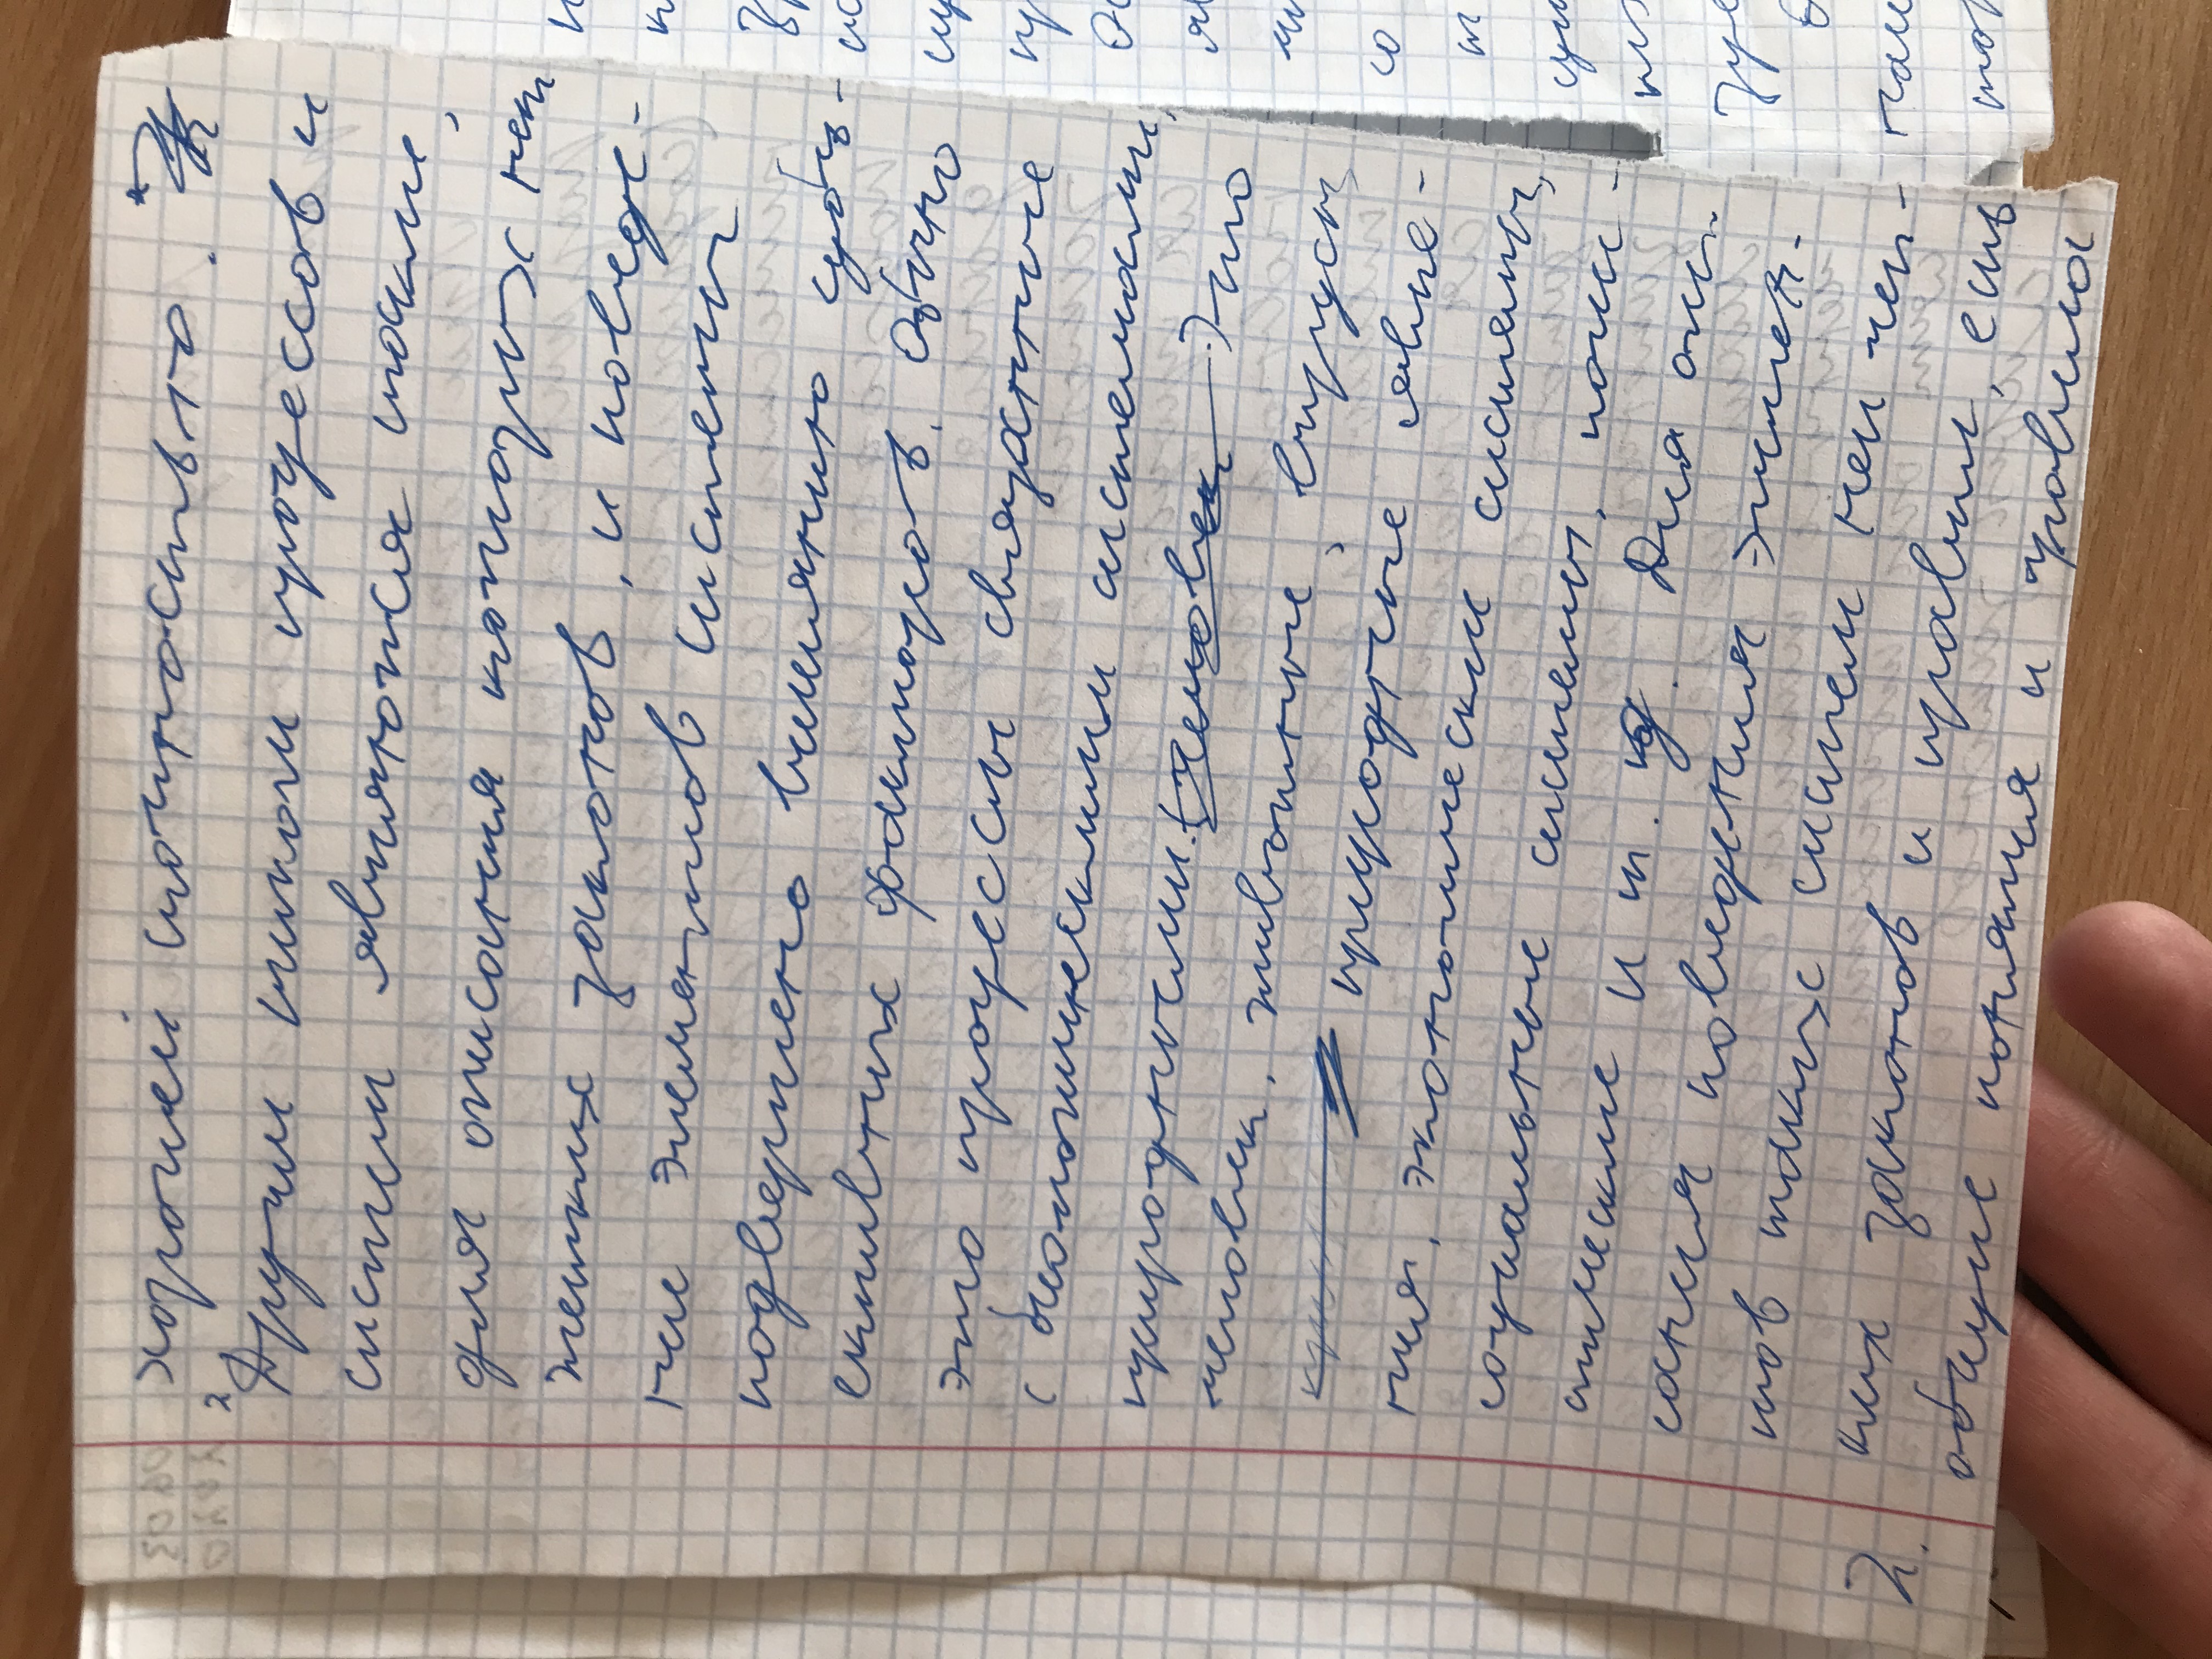 хорошей точностью.
² Другим типом процессов и
систем являются такие,
для описания которых нет
жетких законов, и поведе-
ние элементов системы
подвержено влиянию субъ-
ективных факторов. Обычно
это процессы связанные
с биологическими системами,
природными. Это
человек, животные, вирусы,
природные явле-
ния, экономические системы,
социальные системы, поли-
тические и т. д. Для опи-
сания поведения элемен-
тов таких систем нет чет-
2. ких законов и правил, есть
общие понятия и правила